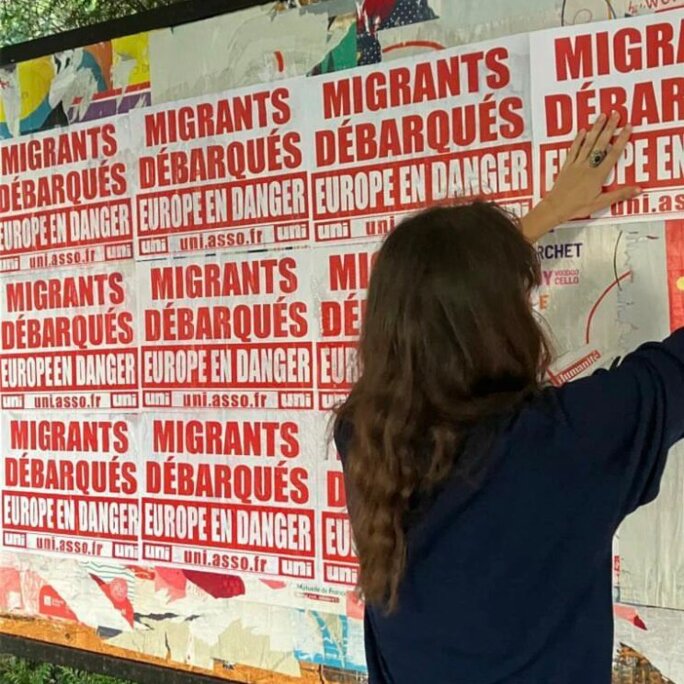 MIGRANTS
DÉBARQUÉS
EUROPE EN DANGER
uni.asso.fr uni
MIGRANTS
DÉBARQUÉS
EUROPE EN DANGER
uni uni.asso.fr uni
MIGRANTS
DÉBARQUÉS
EUROPE EN DANGER
uni uni.asso.fr uni
MIGRA
DÉBAR
EUROPE EN
uni uni.ass
MIGRANTS
DÉBARQUÉS
EUROPE EN DANGER
uni uni.asso.fr uni
MIGRANTS
DÉBARQUÉS
EUROPE EN DANGER
uni uni.asso.fr uni
MI
DÉ
EURO
uni
MIGRANTS
DÉBARQUÉS
EUROPE EN DANGER
uni uni.asso.fr uni
MIGRANTS
DÉBARQUÉS
EUROPE EN DANGER
uni uni.asso.fr uni
EU
uni
ARCHET
VOODOO
CELLO
l'Humanité
Mutuelle de France